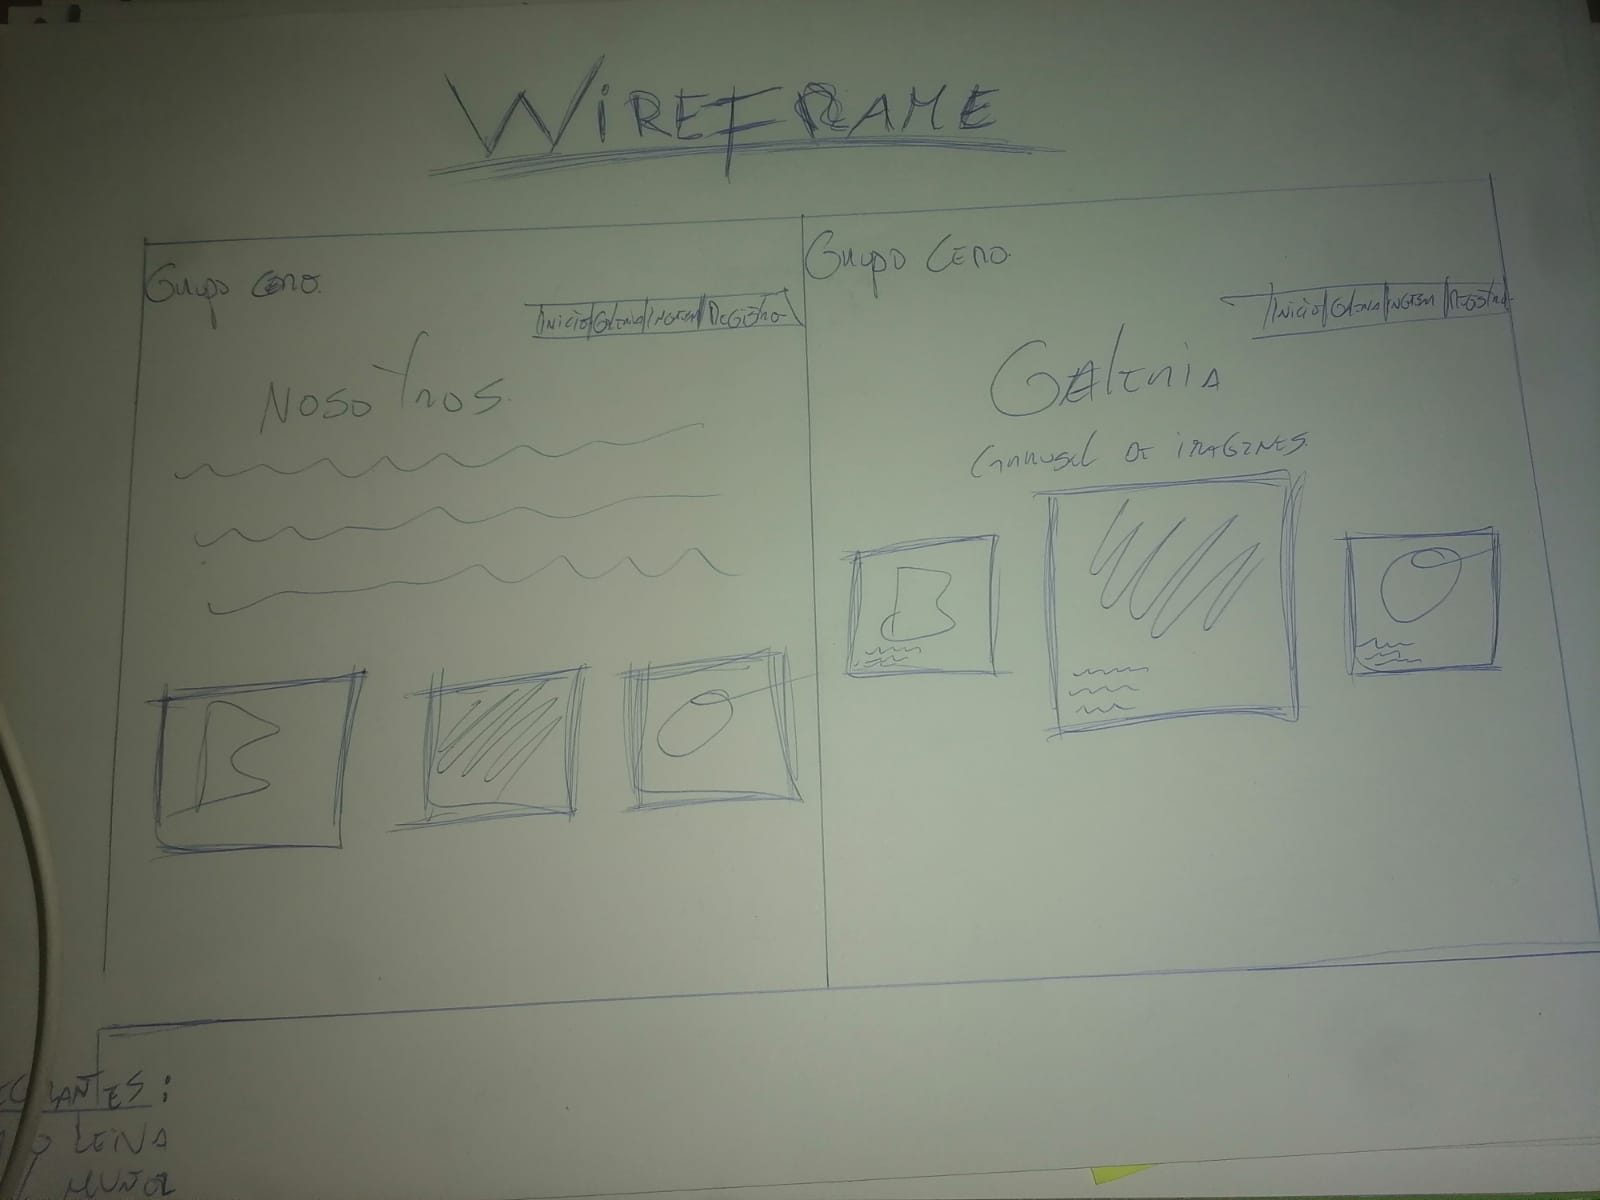 WIREFRAME
Grupo Cero.
Inicio Galeria Registro
Nosotros.
Grupo Cero.
Inicio Galeria Registro
Galeria
Carrusel de imagenes.
LEIVA
MUÑOZ